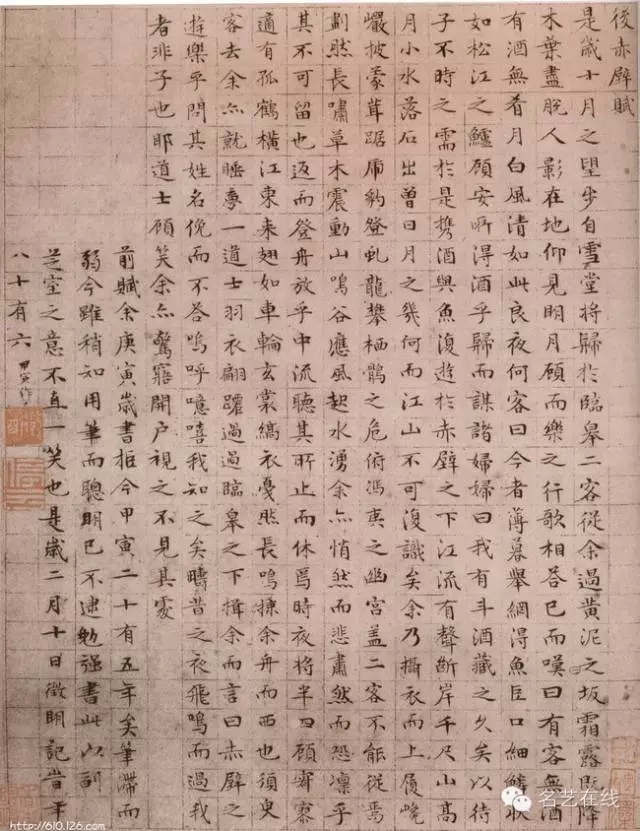 後赤壁賦
是歲十月之望步自雪堂將歸於臨皋二客從余過黃泥之坂霜露既降
木葉盡脫人影在地仰見明月顧而樂之行歌相答已而嘆曰有客無酒
有酒無肴月白風清如此良夜何客曰今者薄暮舉網得魚巨口細鱗狀
如松江之鱸顧安所得酒乎歸而謀諸婦婦曰我有斗酒藏之久矣以待
子不時之需於是攜酒與魚復遊於赤壁之下江流有聲斷岸千尺山高
月小水落石出曾日月之幾何而江山不可復識矣余乃攝衣而上履巉
巖披蒙茸踞虎豹登虬龍攀栖鶻之危俯馮夷之幽宮蓋二客不能從焉
劃然長嘯草木震動山鳴谷應風起水湧余亦悄然而悲肅然而恐凜乎
其不可留也返而登舟放乎中流聽其所止而休焉時夜將半四顧寂寥
適有孤鶴橫江東來翅如車輪玄裳縞衣戛然長鳴掠余舟而西也須臾
客去余亦就睡夢一道士羽衣翩躚過過臨皋之下揖余而言曰赤壁之
遊樂乎問其姓名俛而不答嗚呼噫嘻我知之矣疇昔之夜飛鳴而過我
者非子也耶道士顧笑余亦驚寤開戶視之不見其處
前賦余庚寅歲書拒今甲寅二十有五年矣筆滯而
弱今雖稍知用筆而聰明已不逮勉強書此以副
芝室之意不直一笑也是歲二月十日徵明記旹年
八十有六
http://610.126.com/
名艺在线